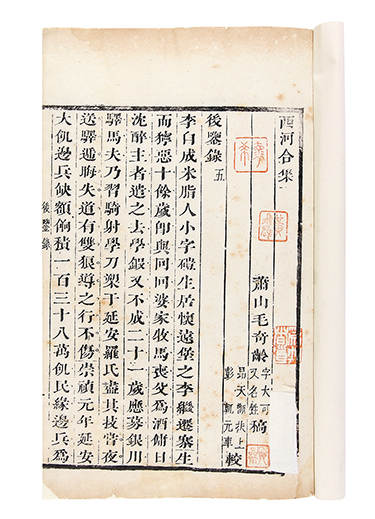 西河合集
蕭山毛奇齡 字大可又名甡 稿
後鑒錄 五
李自成米脂人小字磑生居懷遠堡之李繼遷寨生
而獰惡十餘歲卽與囘囘婆家牧馬喪父爲酒傭日
沈醉主者遣之去學鍛又不成二十一歲應募銀川
驛馬夫乃習騎射學刀槊于延安羅氏盡其技嘗夜
送驛遞晦失道有雙狼導之行不傷崇禎元年延安
大飢邊兵缺額餉積一百三十八萬飢民緣邊兵爲
後鑒錄